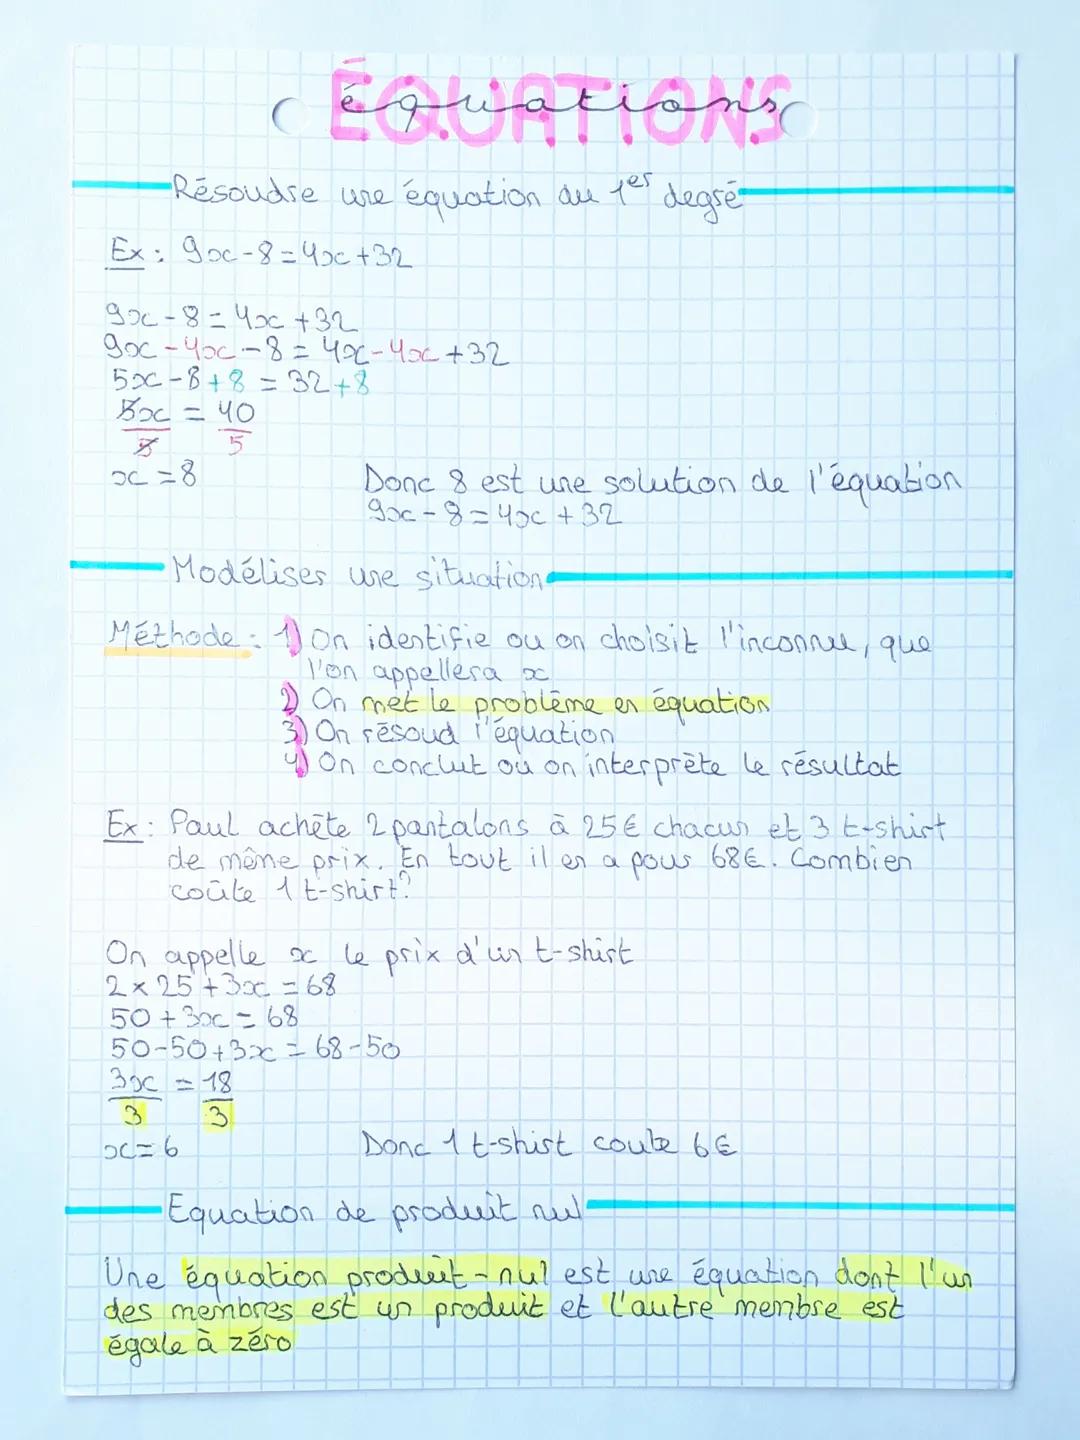 ÉQUATIONS
équations
Résoudre une équation du 1er degré
Ex : 9x-8=4x+32
9x-8=4x+32
9x-4x-8=4x-4x+32
5x-8+8=32+8
5x/5 = 40/5
x=8
Donc 8 est une solution de l'équation
9x-8=4x+32
Modéliser une situation
Méthode : 1) On identifie ou on choisit l'inconnue, que
l'on appellera x
2) On met le problème en équation
3) On résoud l'équation
4) On conclut ou on interprète le résultat
Ex : Paul achète 2 pantalons à 25€ chacun et 3 t-shirt
de même prix. En tout il en a pour 68€. Combien
coûte 1 t-shirt?
On appelle x le prix d'un t-shirt
2×25+3x=68
50+3x=68
50-50+3x=68-50
3x/3 = 18/3
x=6
Donc 1 t-shirt coute 6€
Equation de produit nul
Une équation produit-nul est une équation dont l'un
des membres est un produit et l'autre membre est
égale à zéro